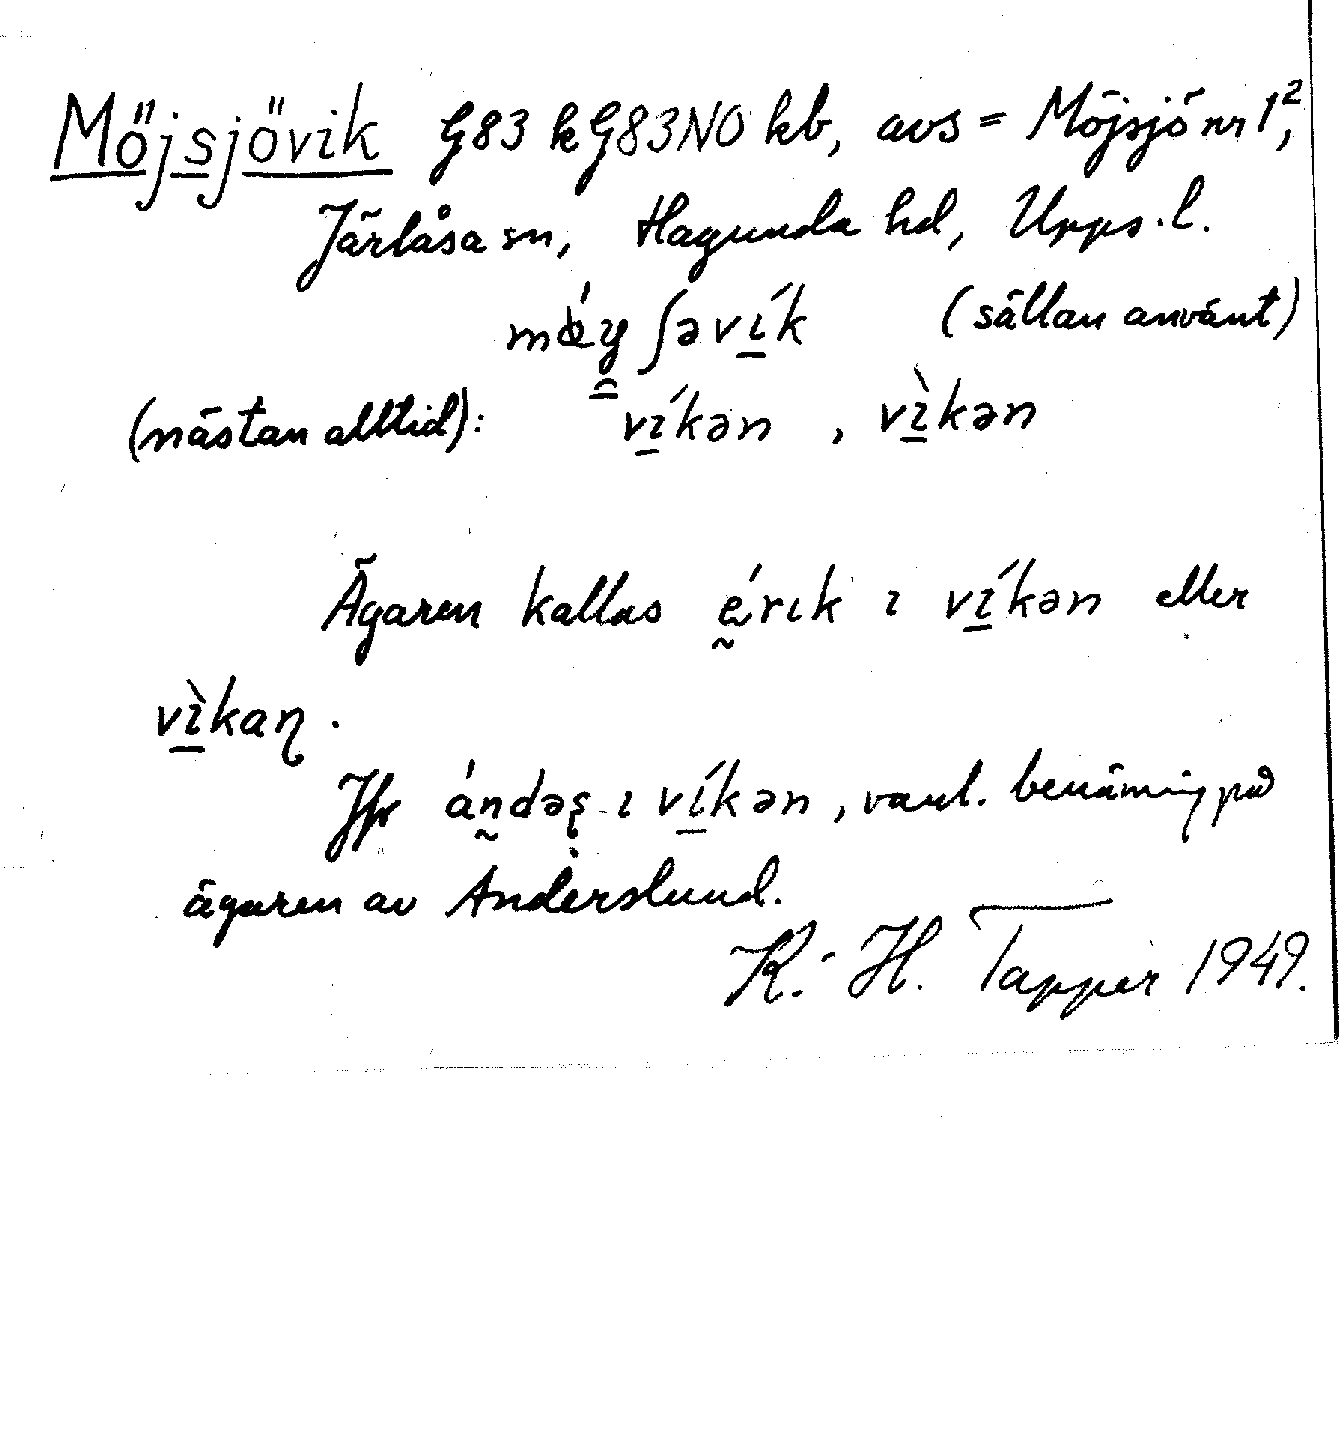 Möjsjövik G83 k G83NO kb, avs = Möjsjö nr 1²,
Järlåsa sn, Hagunda hd, Upps. l.
ʃəvı̲́k (sällan använt)
(nästan alltid): vı̲́kən , vı̲̀kən
Ägaren kallas ḛ́rık ı vı̲́kən eller
vı̲̀kaɳ.
Jfr án̰dəʂ ı vı̲́kən, vanl. benämning på
ägaren av Anderslund.
K.-H. Tapper 1949.